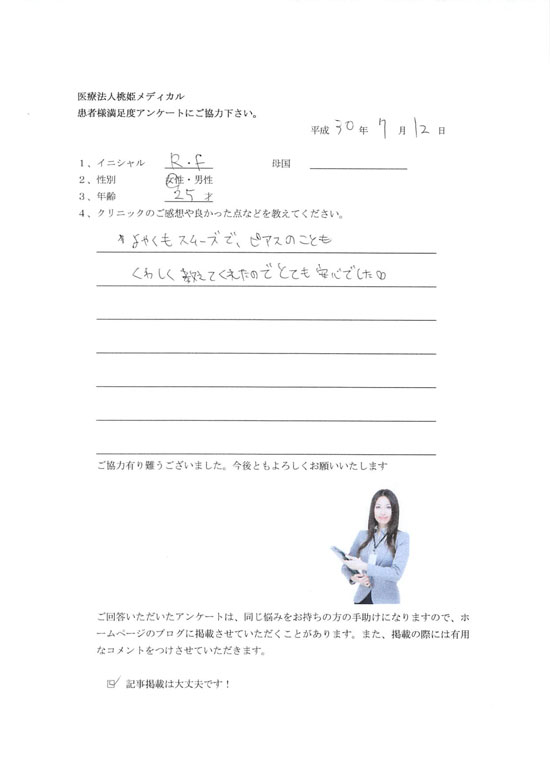 医療法人桃姫メディカル
患者様満足度アンケートにご協力下さい。
平成 30 年 7 月 12 日
1、イニシャル R・F 母国
2、性別 女性・男性
3、年齢 25才
4、クリニックのご感想や良かった点などを教えてください。
よやくもスムーズで、ピアスのことも
くわしく教えてくれたのでとても安心でした
ご協力有り難うございました。今後ともよろしくお願いいたします
ご回答いただいたアンケートは、同じ悩みをお持ちの方の手助けになりますので、ホ
ームページのブログに掲載させていただくことがあります。また、掲載の際には有用
なコメントをつけさせていただきます。
☑ 記事掲載は大丈夫です！